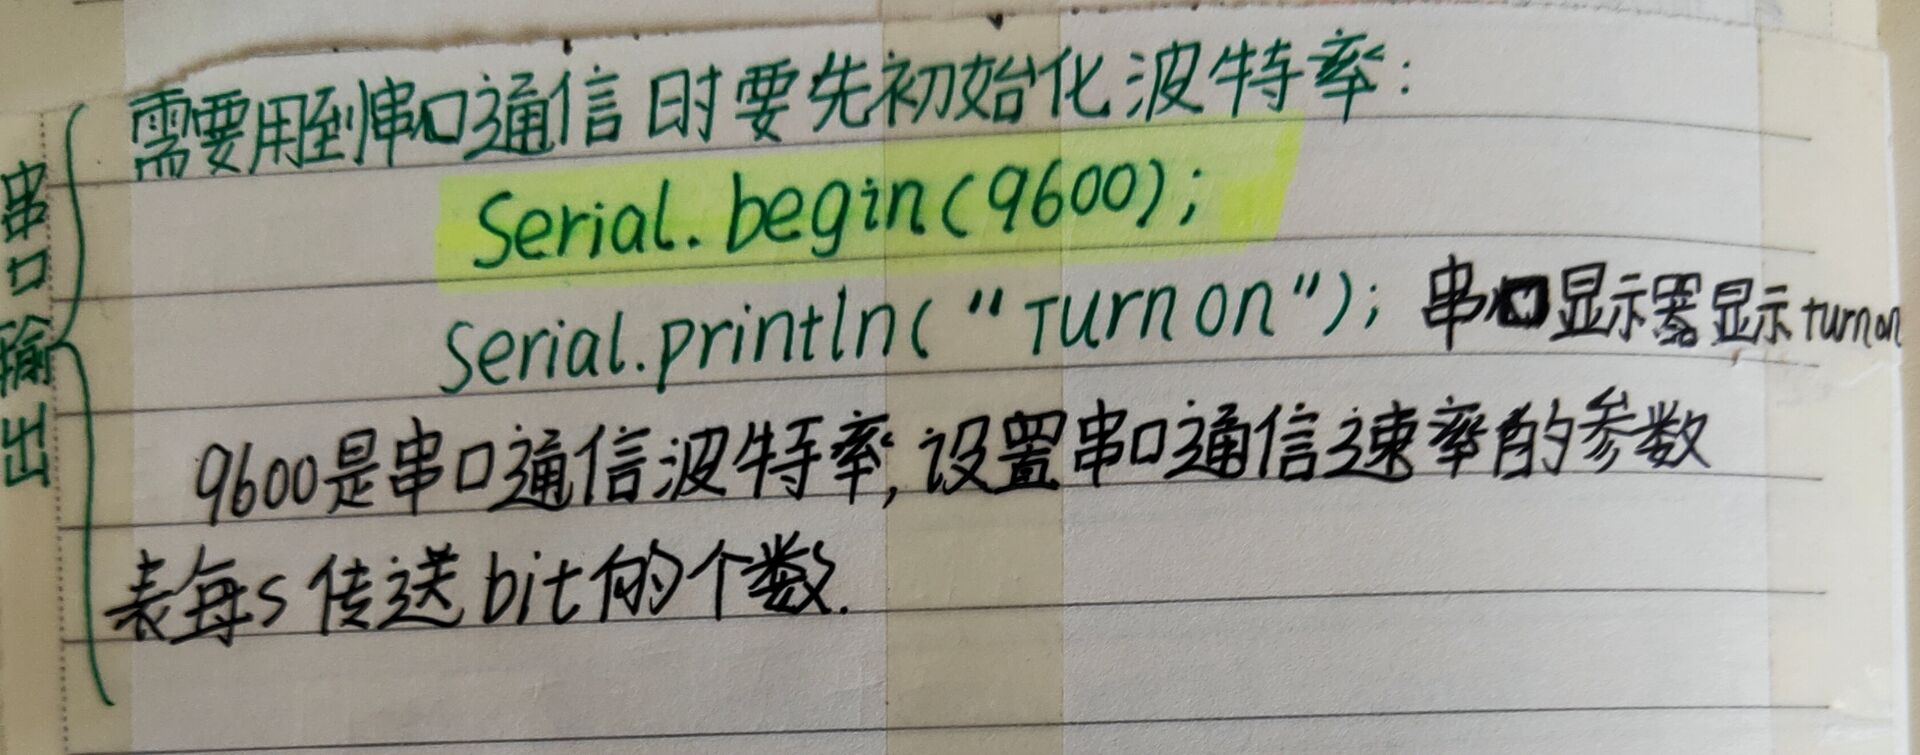 串口输出
需要用到串口通信时要先初始化波特率:
Serial.begin(9600);
Serial.println("Turn on"); 串口显示器显示turn on
9600是串口通信波特率,设置串口通信速率的参数
表每s传送bit的个数.